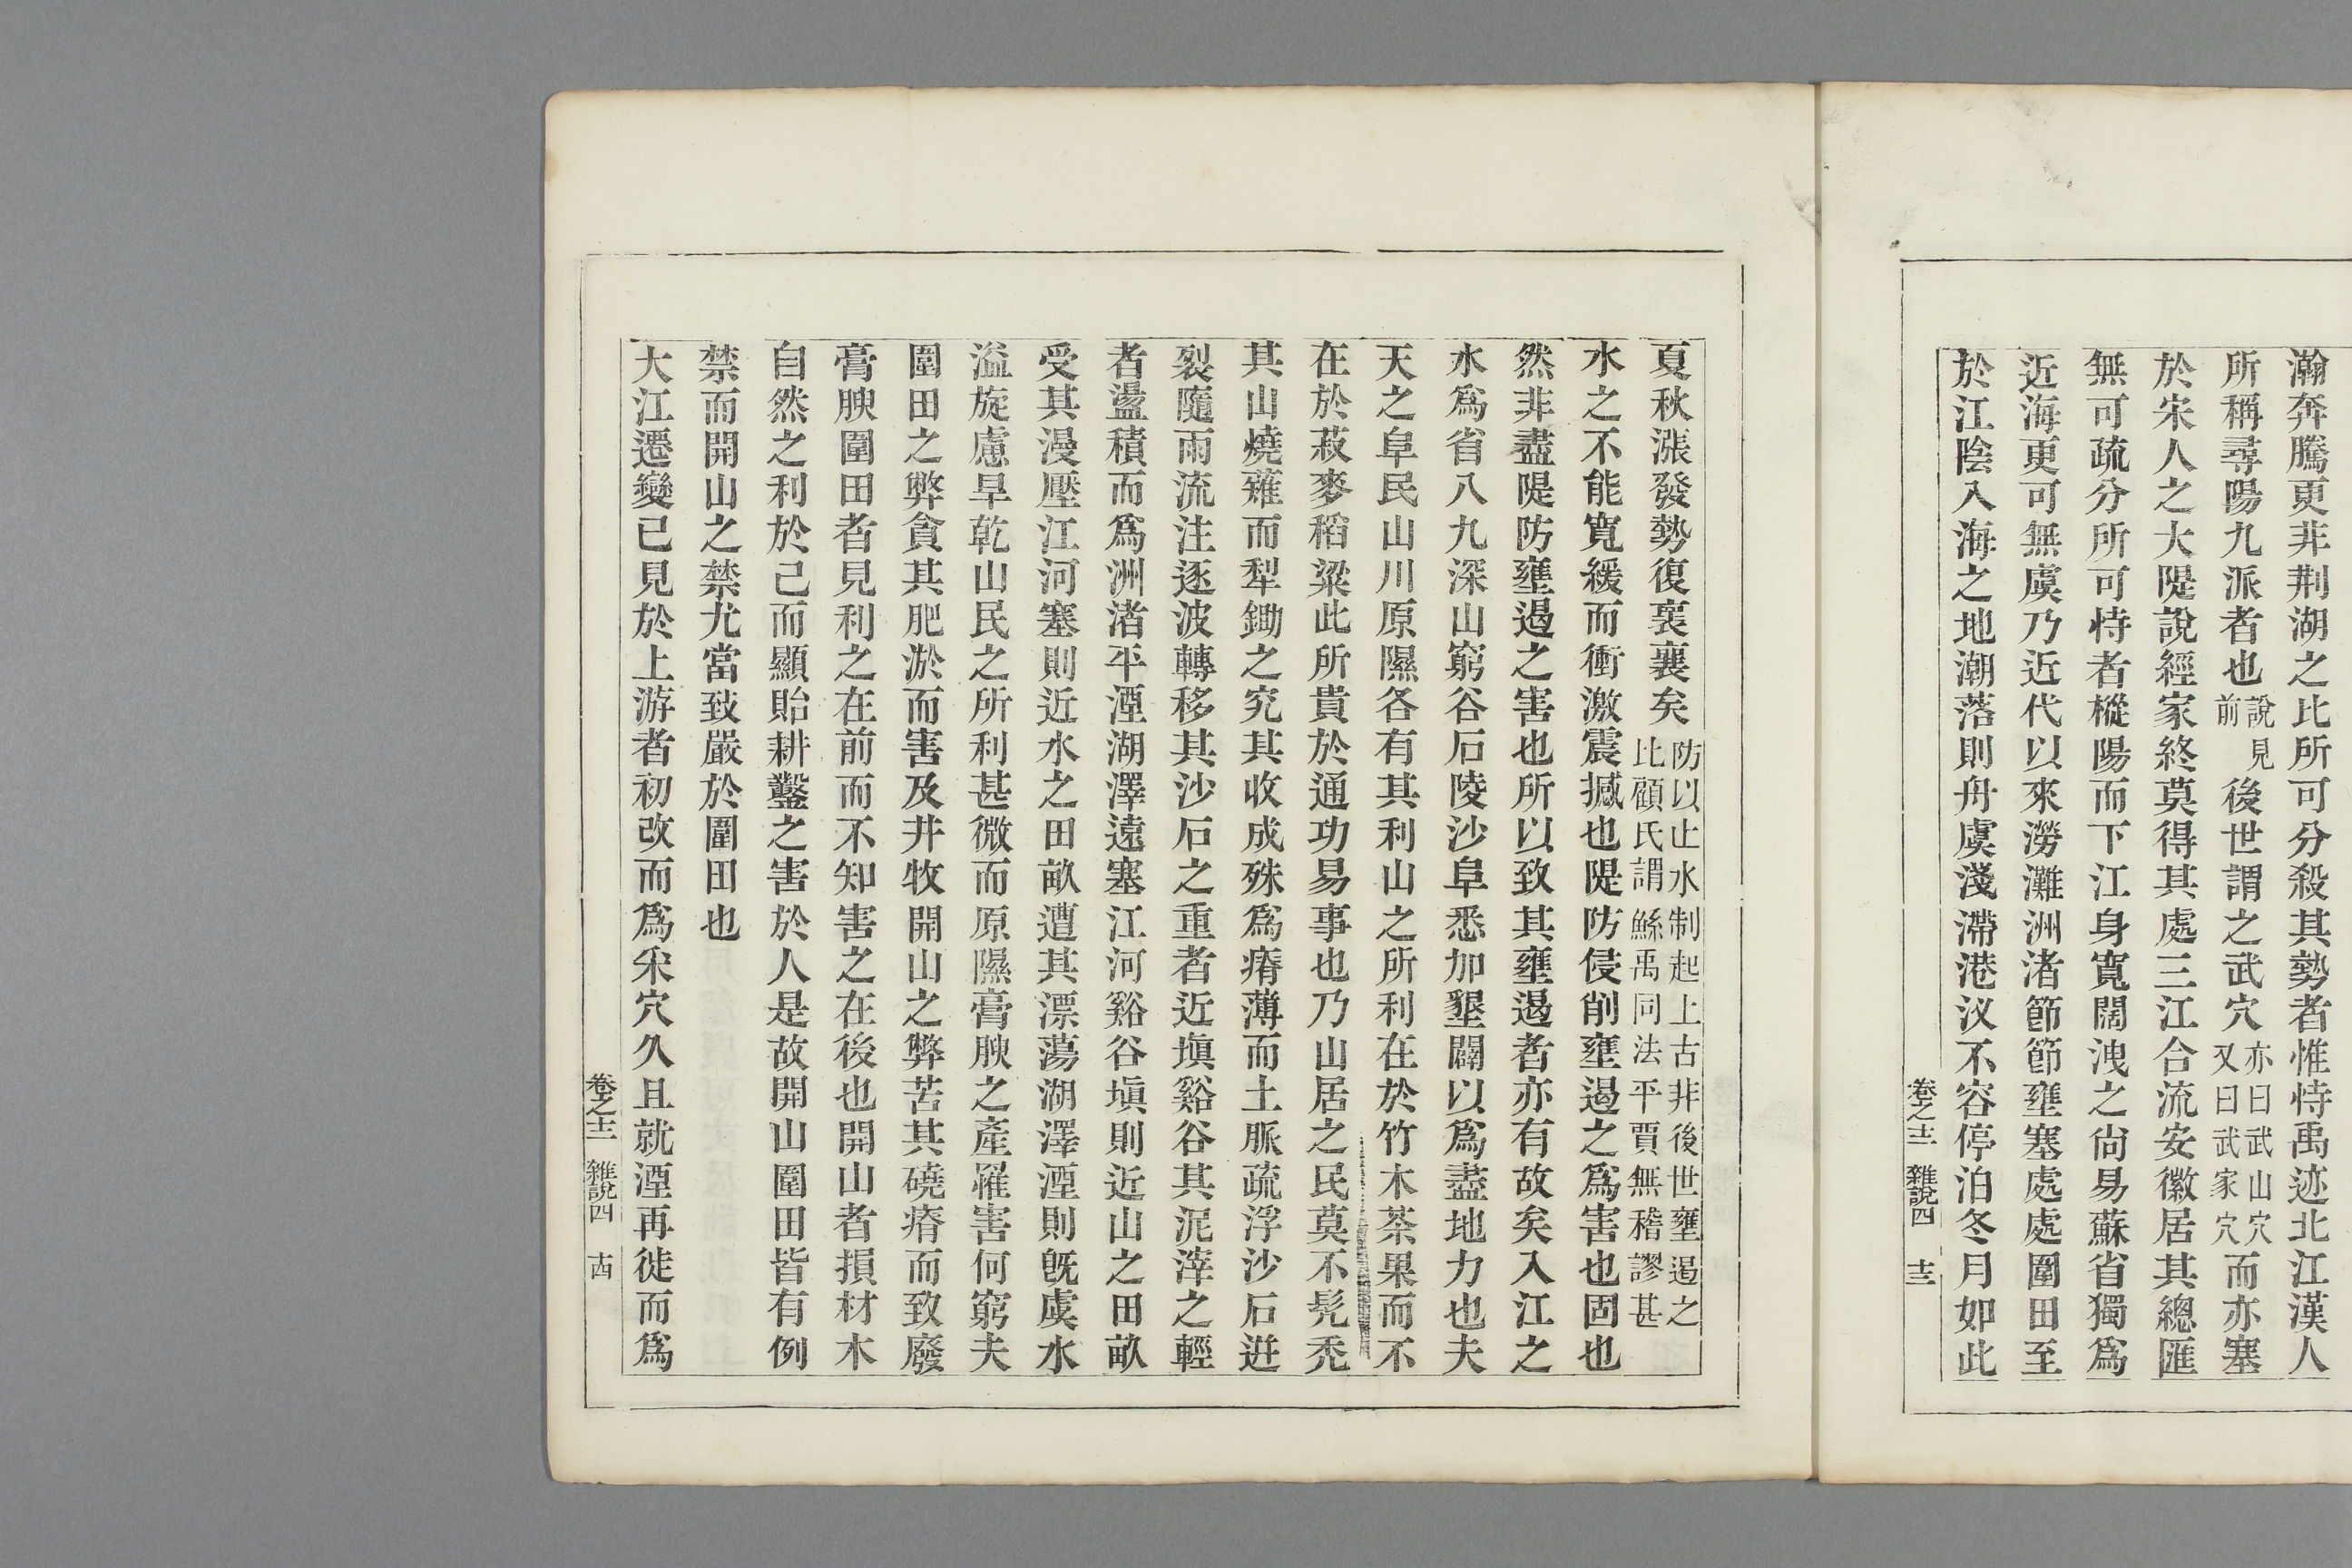 瀚奔騰更非荆湖之比所可分殺其勢者惟恃禹迹北江漢人
所稱尋陽九派者也說見前後世謂之武穴亦曰武山穴又曰武家穴而亦塞
於宋人之大隄說經家終莫得其處三江合流安徽居其總匯
無可疏分所可恃者樅陽而下江身寬闊洩之尙易蘇省獨爲
近海更可無虞乃近代以來澇灘洲渚節節壅塞處處圍田至
於江陰入海之地潮落則舟虞淺滯港汊不容停泊冬月如此
卷之十二 雜說四 十三
夏秋漲發勢復裹襄矣防以止水制起上古非後世壅遏之比顧氏謂鯀禹同法平賈無稽謬甚
水之不能寬緩而衝激震撼也隄防侵削壅遏之爲害也固也
然非盡隄防壅遏之害也所以致其壅遏者亦有故矣入江之
水爲省八九深山窮谷石陵沙阜悉加墾闢以爲盡地力也夫
天之阜民山川原隰各有其利山之所利在於竹木茶果而不
在於菽麥稻粱此所貴於通功易事也乃山居之民莫不髡禿
其山燒薙而犁鋤之究其收成殊爲瘠薄而土脈疏浮沙石迸
裂隨雨流注逐波轉移其沙石之重者近塡谿谷其泥滓之輕
者盪積而爲洲渚平湮湖澤遠塞江河谿谷塡則近山之田畝
受其漫壓江河塞則近水之田畝遭其漂蕩湖澤湮則旣虞水
溢旋慮旱乾山民之所利甚微而原隰膏腴之產罹害何窮夫
圍田之弊貪其肥淤而害及井牧開山之弊苦其磽瘠而致廢
膏腴圍田者見利之在前而不知害之在後也開山者損材木
自然之利於己而顯貽耕鑿之害於人是故開山圍田皆有例
禁而開山之禁尤當致嚴於圍田也
大江遷變已見於上游者初改而爲釆穴久且就湮再徙而爲
卷之十二 雜說四 十四